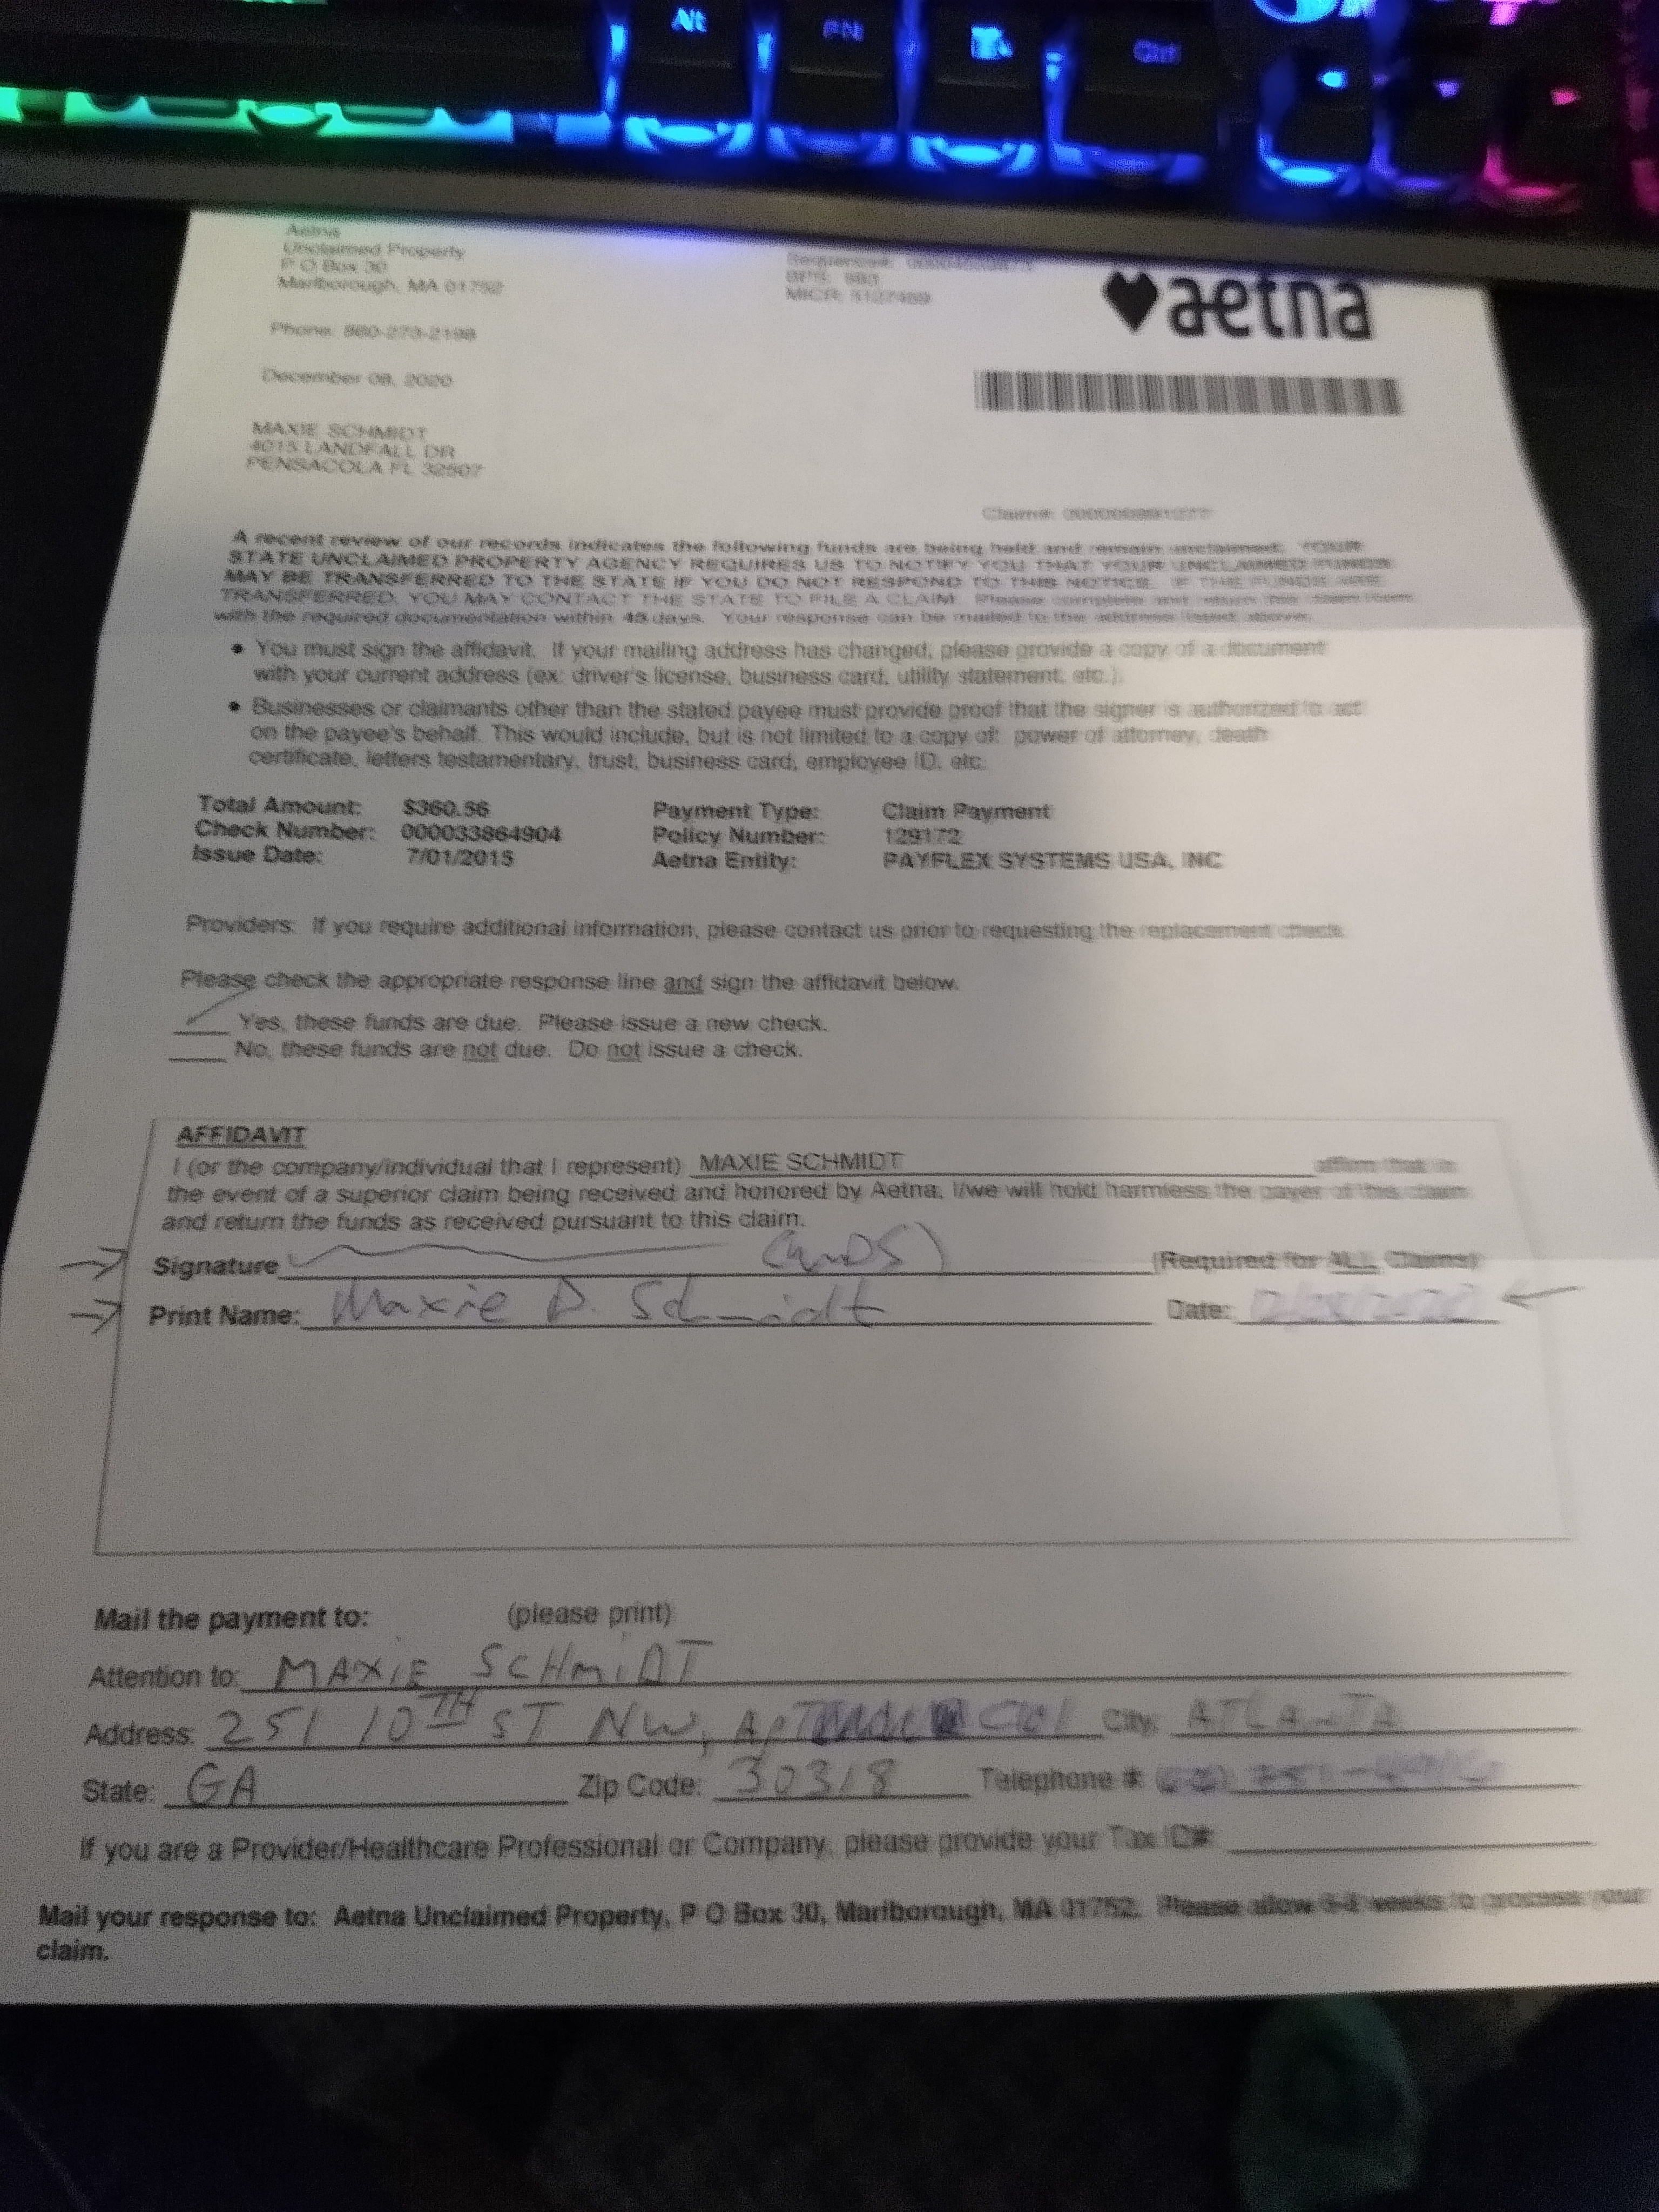 Alt
FN
Ctrl
Aetna
Unclaimed Property
P O Box 30
Marlborough, MA 01752
Phone: 860-273-2198
December 08, 2020
aetna
MAXIE SCHMIDT
4015 LANDFALL DR
PENSACOLA FL 32507
Claim#:
A recent review of our records indicates the following funds are being held and remain unclaimed. YOUR
STATE UNCLAIMED PROPERTY AGENCY REQUIRES US TO NOTIFY YOU THAT YOUR UNCLAIMED FUNDS
MAY BE TRANSFERRED TO THE STATE IF YOU DO NOT RESPOND TO THIS NOTICE. IF THE FUNDS ARE
TRANSFERRED, YOU MAY CONTACT THE STATE TO FILE A CLAIM. Please complete and return this claim form
with the required documentation within 45 days. Your response can be mailed to the address listed above.
• You must sign the affidavit. If your mailing address has changed, please provide a copy of a document
with your current address (ex: driver's license, business card, utility statement, etc.).
• Businesses or claimants other than the stated payee must provide proof that the signer is authorized to act
on the payee's behalf. This would include, but is not limited to a copy of: power of attorney, death
certificate, letters testamentary, trust, business card, employee ID, etc.
Total Amount: $360.56 Payment Type: Claim Payment
Check Number: 000033864904 Policy Number: 129172
Issue Date: 7/01/2015 Aetna Entity: PAYFLEX SYSTEMS USA, INC
Providers: If you require additional information, please contact us prior to requesting the replacement check.
Please check the appropriate response line and sign the affidavit below.
Yes, these funds are due. Please issue a new check.
No, these funds are not due. Do not issue a check.
AFFIDAVIT
I (or the company/individual that I represent) MAXIE SCHMIDT affirm that in
the event of a superior claim being received and honored by Aetna, I/we will hold harmless the payer of this claim
and return the funds as received pursuant to this claim.
Signature (MDS) (Required for ALL Claims)
Print Name: Maxie D. Schmidt Date:
Mail the payment to: (please print)
Attention to: MAXIE SCHMIDT
Address: 251 10TH ST NW, Apt City: ATLANTA
State: GA Zip Code: 30318 Telephone #:
If you are a Provider/Healthcare Professional or Company, please provide your Tax ID#:
Mail your response to: Aetna Unclaimed Property, P O Box 30, Marlborough, MA 01752. Please allow weeks to process your
claim.